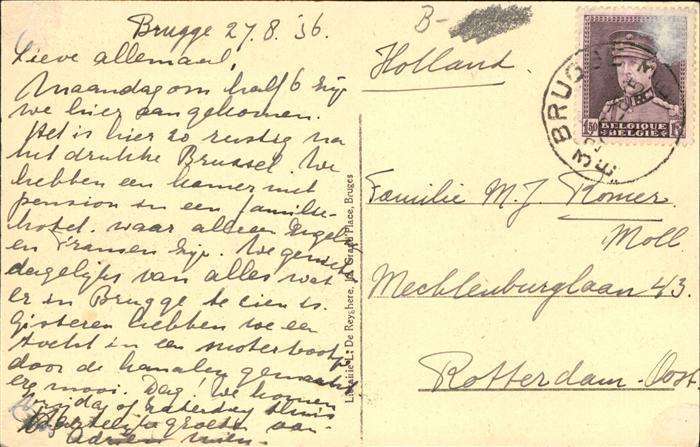 Brugge 27.8.'36.
Lieve allemaal,
Maandag om half 6 zijn
we hier aangekomen.
Het is hier zo rustig na
het drukke Brussel. We
hebben een kamer met
pension in een familie-
hotel. waar alleen Engelsen
en Fransen zijn. We genieten
dagelijks van alles wat
er in Brugge te zien is.
Gisteren hebben we een
tocht in een motorbootje
door de kanalen gemaakt,
erg mooi. Dag! We komen
of thuis
Hartelijk groeten van
B-
Holland.
BRUGGE
BELGIQUE
BELGIË
1F50
Familie M. J. Romer.
Moll
Mecklenburglaan 43.
Rotterdam-Oost
Librairie L. De Reyghere, Grand'Place, Bruges